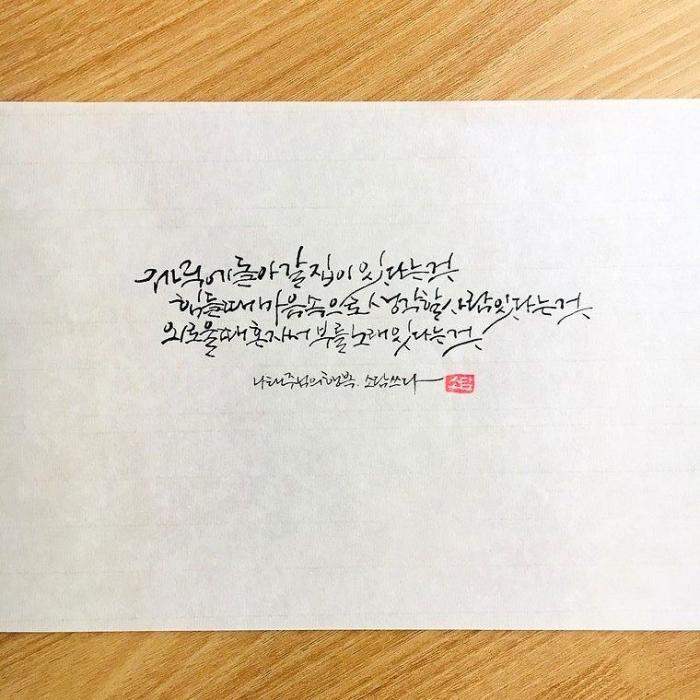 저녁에 돌아갈 집이 있다는 것
힘들 때 마음속으로 생각할 사람 있다는 것
외로울 때 혼자서 부를 노래 있다는 것
나태주님의 행복. 소담쓰다 소담